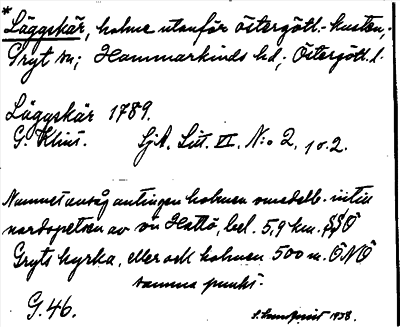 * Läggskär, holme utanför Östergötl.-kusten,
Gryt sn; Hammarkinds hd; Östergötl. l.
Läggskär 1789.
G. Klint. SjA. Litt. VI. N:o 2, 1 o. 2.
Namnet avsåg antingen holmen omedelb. intill
nordspetsen av ön Hattö, bel. 5,9 km. SSO
Gryts kyrka, eller ock holmen 500 m. ONO
samma punkt.
G. 46.
1938.